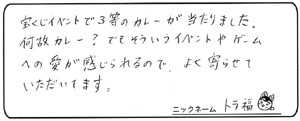 宝くじイベントで3等のカレーが当たりました。
何故カレー？でもそういうイベントやゲーム
への愛が感じられるので、よく寄らせて
いただいてます。
ニックネーム トラ福